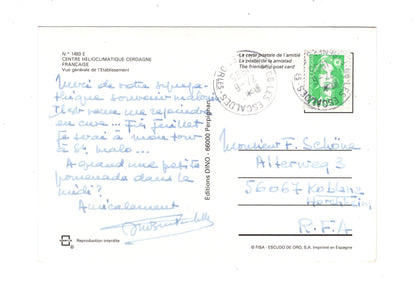 N.° 1483 E
CENTRE HÉLIOCLIMATIQUE CERDAGNE
FRANÇAISE
Vue générale de l'Etablissement
Merci de votre sympa-
thique souvenir malouin
Il
en
Fin Juillet
Je serai à mon tour
à St. Malo...
A quand une petite
promenade dans le
midi?
Amicalement
Reproduction interdite
Editions DINO - 66000 Perpignan
La carte postale de l'amitié
La postal de la amistad
The friendship post card
Monsieur F. Schöne
Alterweg 3
56067 Koblenz
R.F.A
© FISA - ESCUDO DE ORO, S.A. Imprimé en Espagne